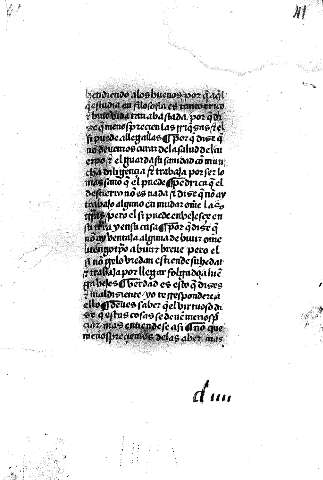 41
hendiendo a los buenos por q̃ aq̃l
q̃ estudia en filosofia es tanto rico
bive vida tan abastada. por q̃ di
ze q̃ menospreçien las rriq̃zas τ el
si puede allegallas ¶ por q̃ dize q̃
no devemos curar de la salud del cu
erpo τ el guarda su sanidad cō mu
cha diligençia τ trabaja por ser lo
mas sano q̃ el puede ¶ pedricā q̃ el
destierro no es nada τ dize q̃ no ay
trabajo alguno en mudar ōme las
pero el si puede envejesçe en
su trra y en su casa ¶ por q̃ dize q̃
no ay ventaja alguna de bivir ome
luengo tpō a bivir breve pero el
si no gelo viedan estiende su hedat
τ trabaja por llegar
¶ verdad es esto q̃ dizes
maldiziente yo te rresponderē a
ello ¶ deves saber q̃ el virtuoso di
ze q̃ estas cosas se deuē menospr
çiar mas entiendese asi ¶ no que
menospreçiemos de las aber mas
d iiii